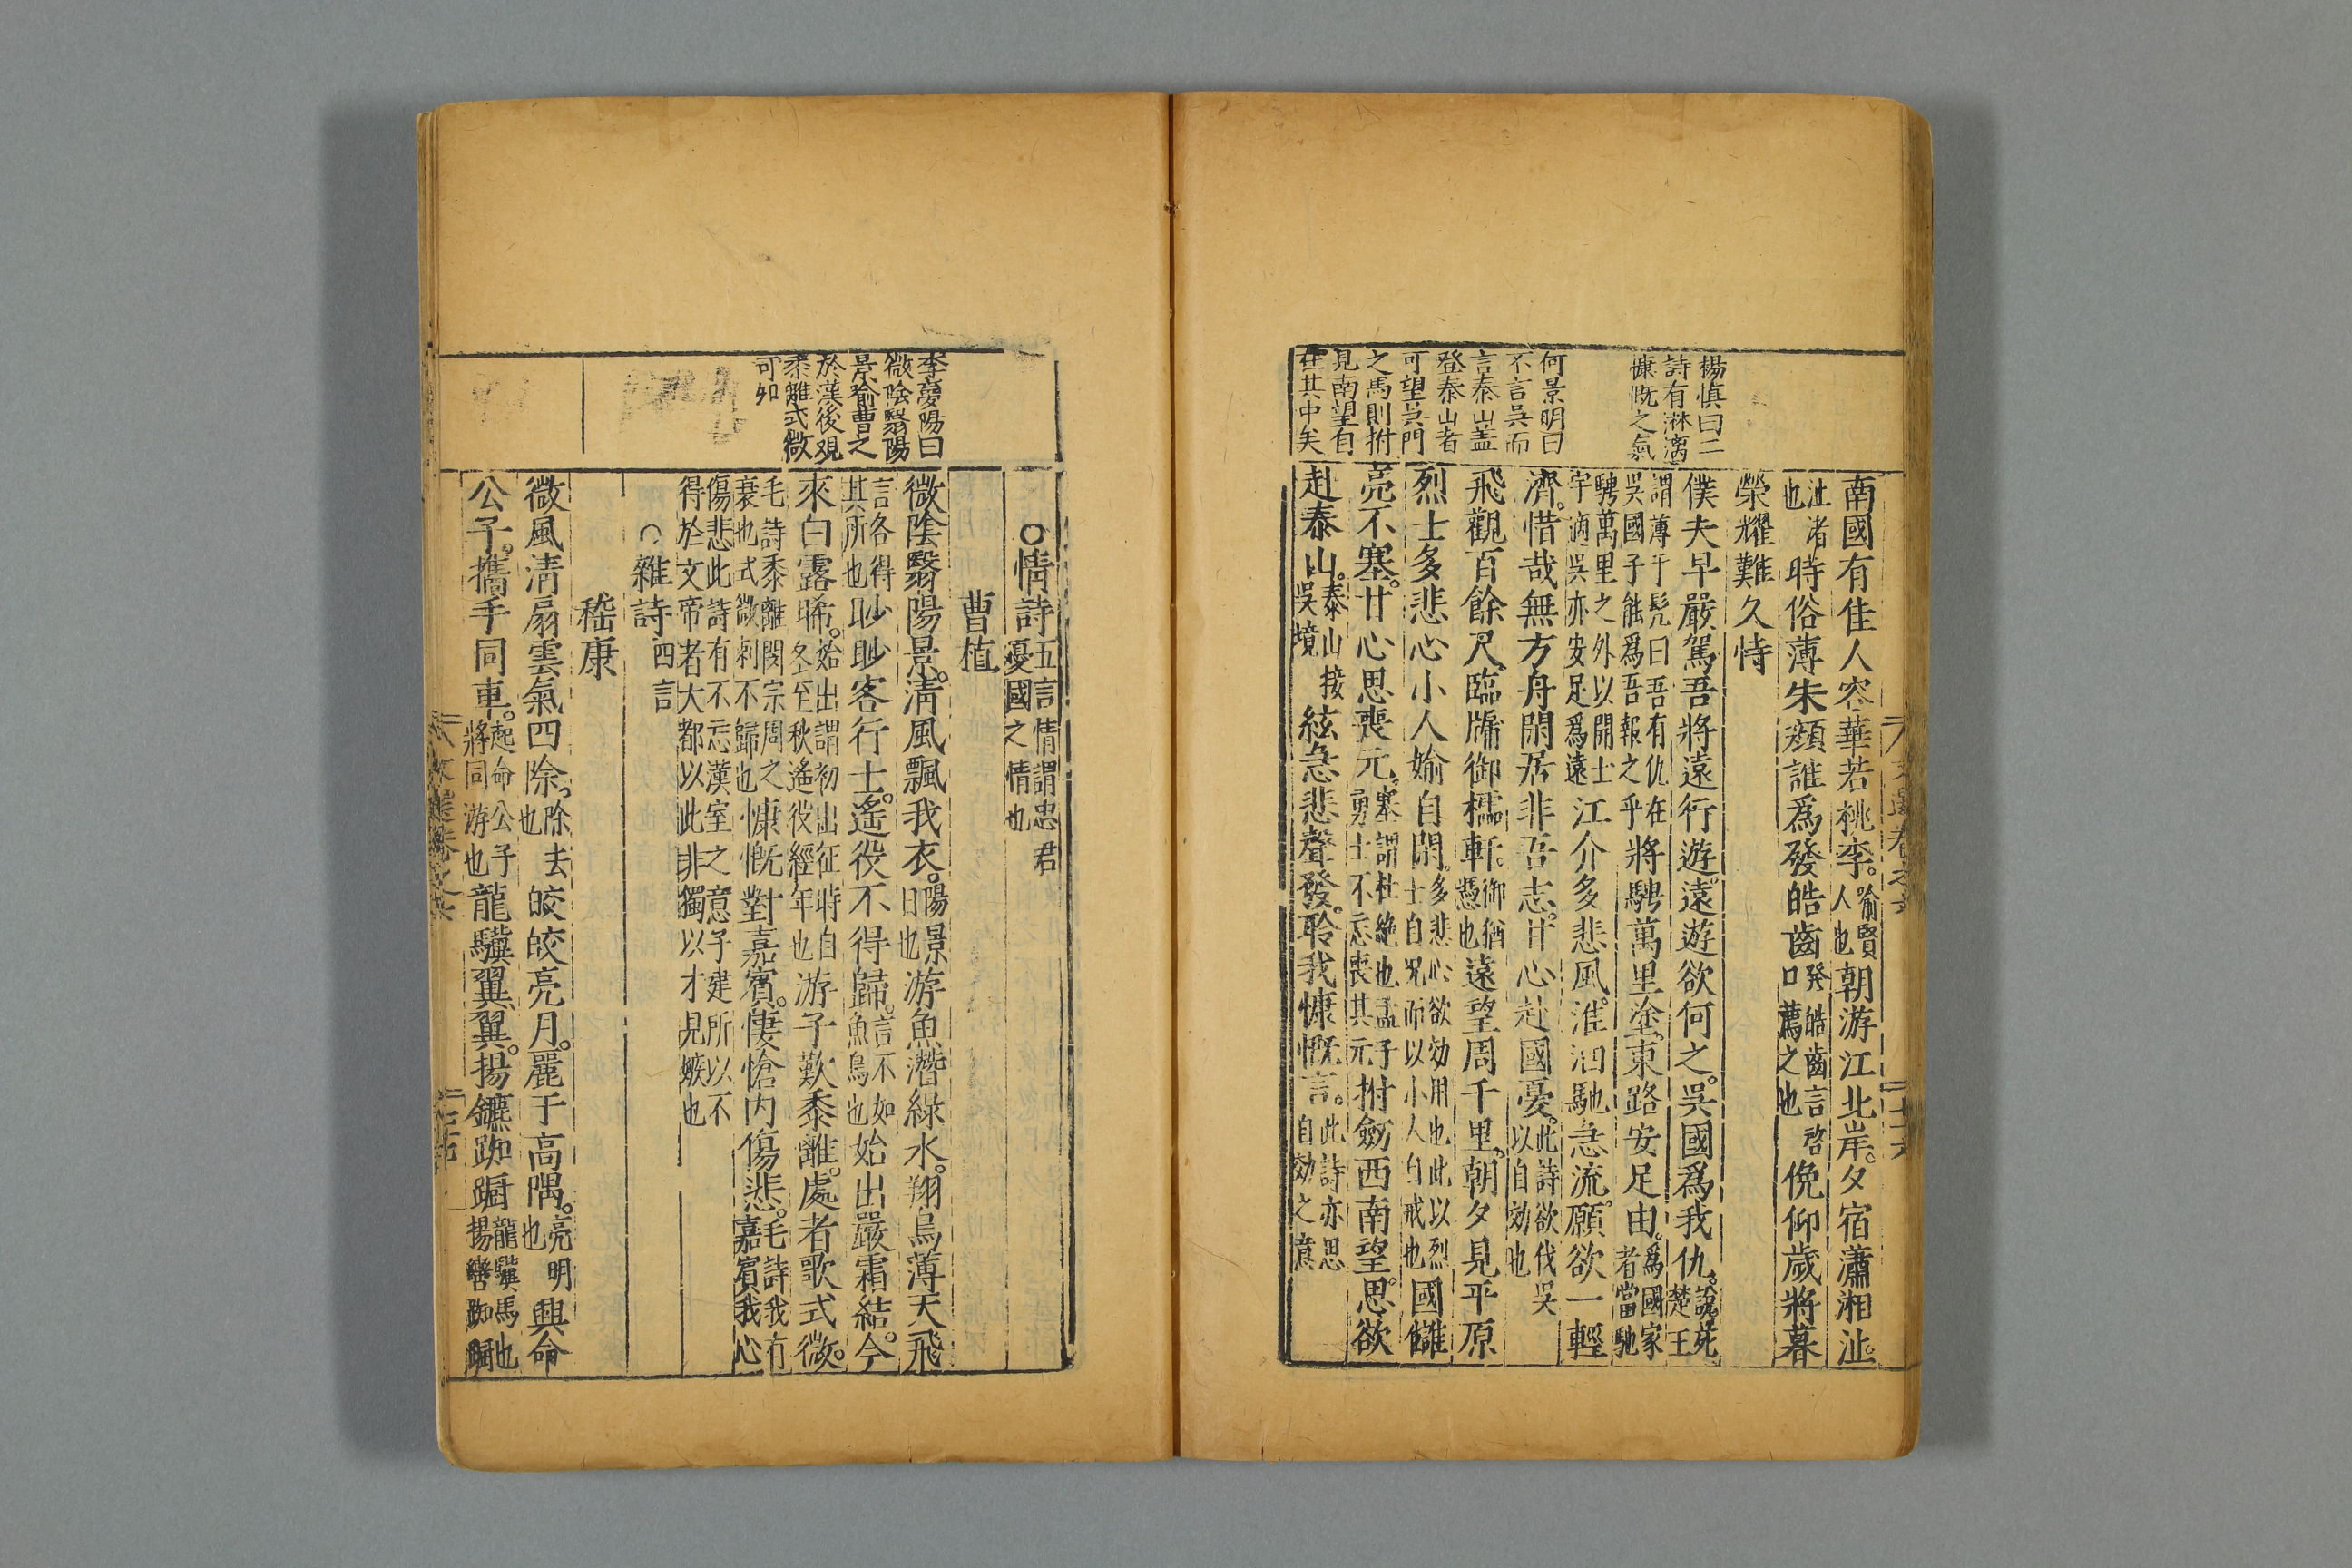 楊慎曰二
詩有淋漓
慷慨之氣
何景明曰
不言吳而
言泰山盖
登泰山者
可望吳門
之馬則拊
見南望自
在其中矣
南國有佳人容華若桃李。喻賢人也朝游江北岸。夕宿瀟湘沚。
沚渚也時俗薄朱顔誰爲發皓齒發皓齒言啓口薦之也俛仰歲將暮
榮耀難久恃
僕夫早嚴駕吾將遠行遊。遠遊欲何之。吳國爲我仇。說苑楚王
謂薄于髠曰吾有仇在吳國子能爲吾報之乎將騁萬里塗。東路安足由。爲國家者當馳
騁萬里之外以開土宇適吳亦安足爲遠江介多悲風。淮泗馳急流。願欲一輕
濟。惜哉無方舟閑居非吾志。甘心赴國憂。此詩欲伐吳以自効也
飛觀百餘尺臨牖御櫺軒。御猶憑也遠望周千里。朝夕見平原
烈士多悲心小人媮自閑。多悲心欲効用也此以烈士自况而以小人自戒也國讎
亮不塞。甘心思喪元。塞謂杜絶也孟子勇士不忘喪其元拊劒西南望。思欲
赴泰山。泰山接吳境絃急悲聲發。聆我慷慨言。此詩亦思自効之意
李夢陽曰
微陰翳陽
景喻曹之
於漢後觀
黍離式微
可知
○情詩五言情謂忠君憂國之情也
曹植
微陰翳陽景。清風飄我衣。陽景日也游魚潛綠水。翔鳥薄天飛
言各得其所也眇眇客行士。遙役不得歸。言不如魚鳥也始出嚴霜結。今
來白露晞。始出謂初出征時自冬至秋遙役經年也游子歎黍離。處者歌式微。
毛詩黍離閔宗周之衰也式微刺不歸也慷慨對嘉賓。悽愴内傷悲。毛詩我有嘉賓我心
傷悲此詩有不忘漢室之意子建所以不得於文帝者大都以此非獨以才見嫉也
○雜詩四言
嵇康
微風淸扇雲氣四除。除去也皎皎亮月。麗于高隅。亮明也興命
公子。攜手同車。起命公子將同游也龍驥翼翼。揚鑣踟蹰龍驥馬也揚轡踟蹰